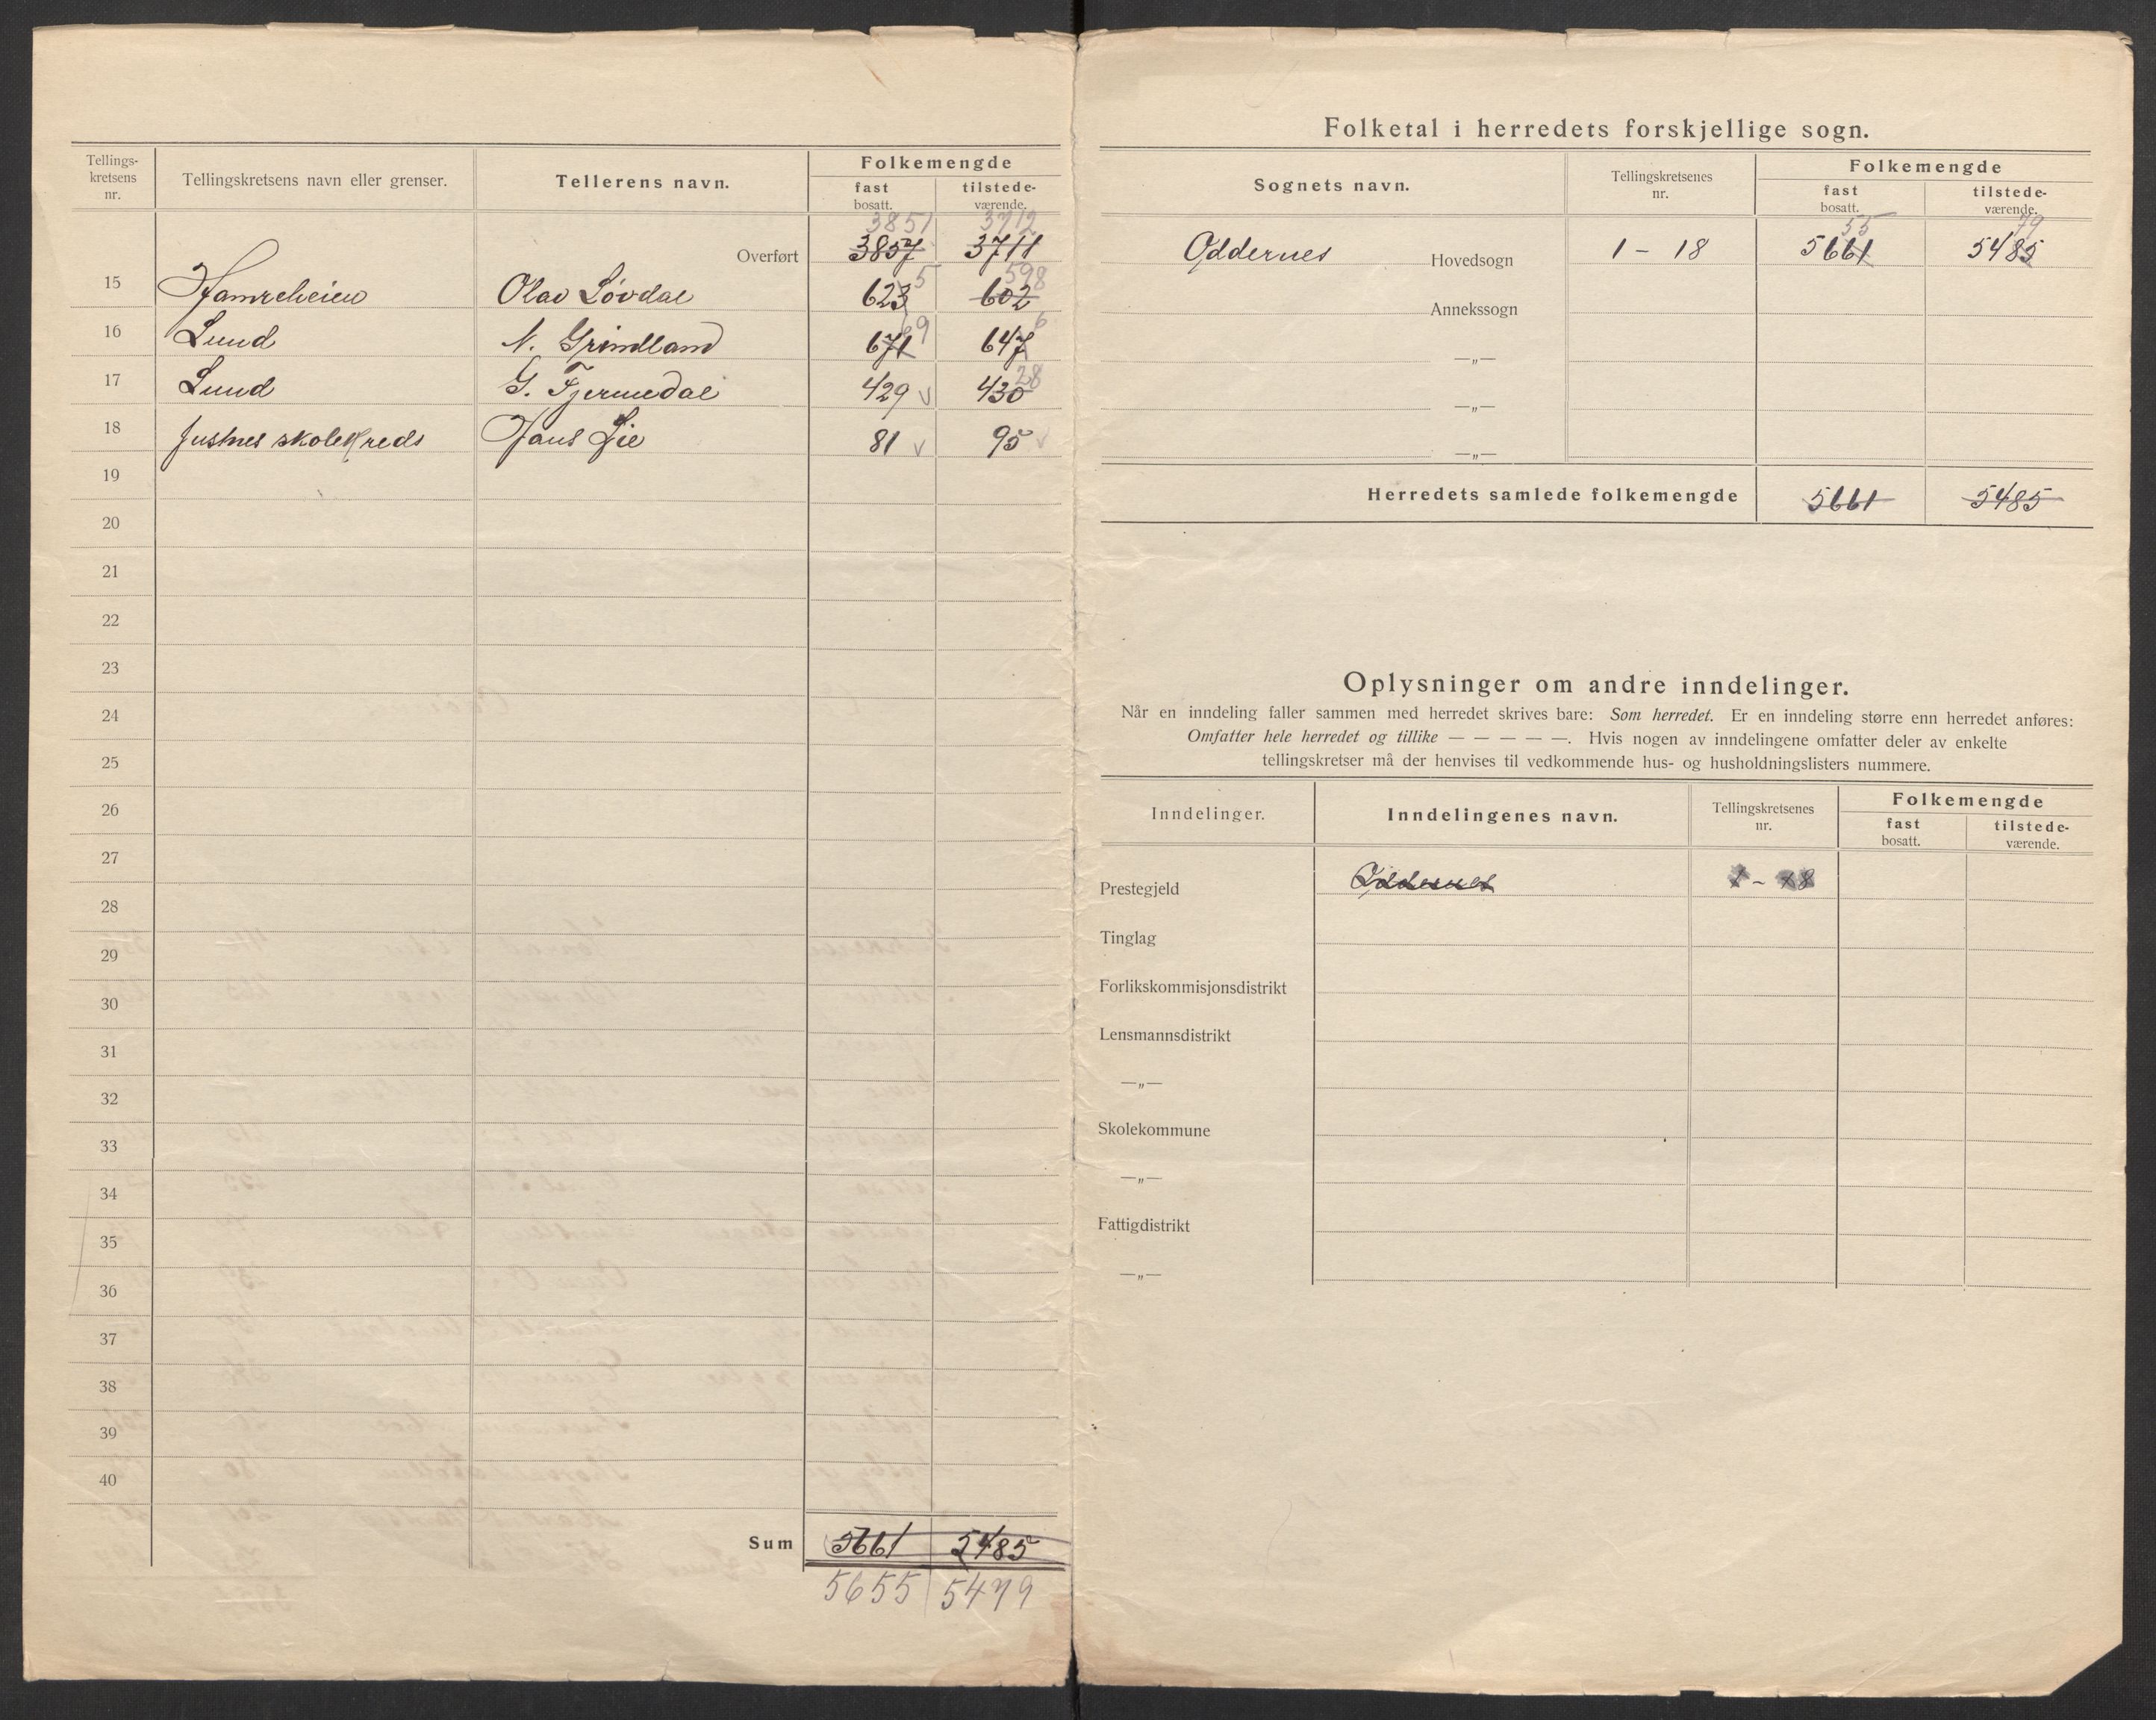 Tellings-
kretsens
nr.
Tellingskretsens navn eller grenser.
Tellerens navn.
Folkemengde
fast
bosatt.
tilstede-
værende.
3851 3712
Overført 3857 3711
15 Hamreheien Olav Løvdal 623 5 602 598
16 Lund N. Grindland 671 69 647 6
17 Lund G. Fjermedal 429 v 430 28
18 Justnes skolekreds Hans Lie 81 v 95 v
19
20
21
22
23
24
25
26
27
28
29
30
31
32
33
34
35
36
37
38
39
40
Sum 5661 5485
5655 5479
Folketal i herredets forskjellige sogn.
Sognets navn.
Tellingskretsenes
nr.
Folkemengde
fast
bosatt.
tilstede-
værende.
55 79
Oddernes Hovedsogn 1 - 18 5661 5485
Annekssogn
—„—
—„—
—„—
Herredets samlede folkemengde 5661 5485
Oplysninger om andre inndelinger.
Når en inndeling faller sammen med herredet skrives bare: Som herredet. Er en inndeling større enn herredet anføres:
Omfatter hele herredet og tillike — — — — —. Hvis nogen av inndelingene omfatter deler av enkelte
tellingskretser må der henvises til vedkommende hus- og husholdningslisters nummere.
Inndelinger.
Inndelingenes navn.
Tellingskretsenes
nr.
Folkemengde
fast
bosatt.
tilstede-
værende.
Prestegjeld Oddernes 1 - 18
Tinglag
Forlikskommisjonsdistrikt
Lensmannsdistrikt
—„—
Skolekommune
—„—
Fattigdistrikt
—„—